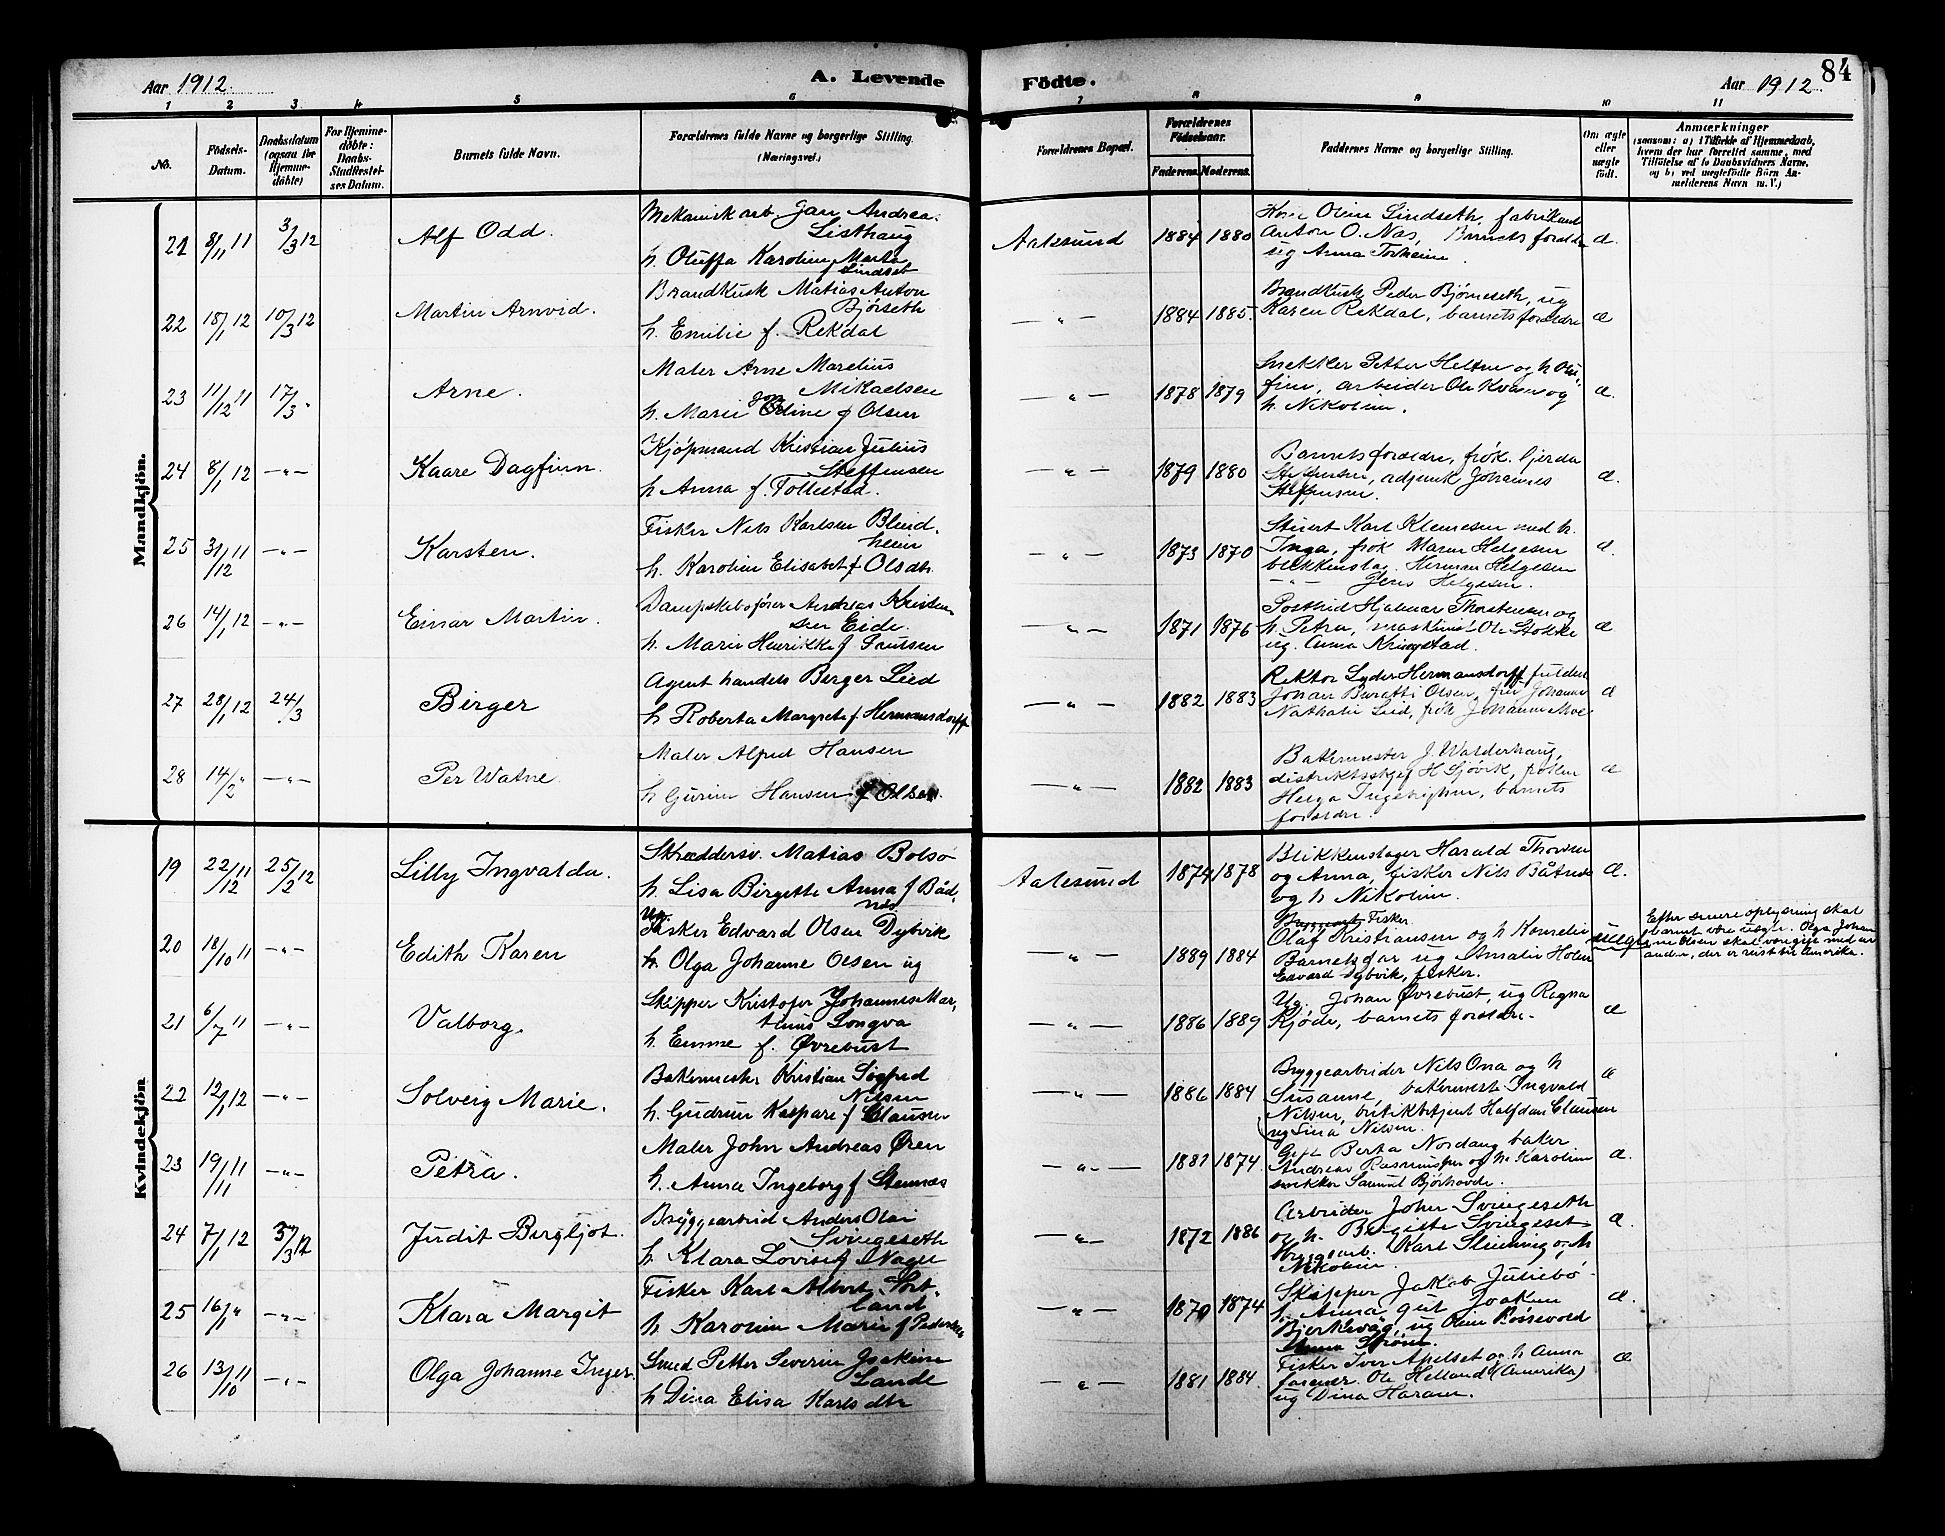 84
Aar 1912.
A. Levende Födte.
Aar 1912.
1 2 3 4 5 6 7 8 9 10 11
No.
Födsels-Datum.
Daabsdatum (ogsaa for Hjemmedöbte)
For Hjemmedöbte: Daabs-Stadfæstelses Datum.
Barnets fulde Navn.
Forældrenes fulde Navne og borgerlige Stilling. (Næringsvei.)
Forældrenes Bopæl.
Forældrenes Födselsaar.
Faderens. Moderens.
Faddernes Navne og borgerlige Stilling.
Om ægte eller uægte födt.
Anmærkninger
(saasom: a) i Tilfælde af Hjemmedaab, hvem der har forrettet samme, med Tilföielse af to Daabsvidners Navne, og b) ved uægtefödte Börn Anmelderens Navn m. V.)
Mandkjön.
21 8/11 11 3/3 12 Alf Odd.
Mekanisk arb. Jan Andreas
Listhaug
h. Oluffa Karoline Marta
f Lindset
Aalesund 1884 1880
Kone Oline Lindseth, fabrikant
Anton O. Nas, Barnets forældre
ug Anna Torheim.
æ.
22 18/1 12 10/3 12 Martin Arnvid.
Brandkusk Matias Anton
Bjørseth
h. Emilie f. Rekdal
— " — 1884 1885.
Brandkusk Peder Bjørneseth, ug
Karen Rekdal, barnets forældre
æ
23 11/12 11 17/3 " Arne.
Maler Arne Marelius
Mikaelsen
h. Marie Odine f Olsen
— " — 1878 1879
Snekker Petter Helsen og h
arbeider Ole Kvasen og
h. Nikoline.
æ.
24 8/1 12 — " — Kaare Dagfinn.
Kjøpmand Kristian Julius
Steffensen
h Anna f. Tollestad.
— " — 1879 1880
Barnets forældre, frøk. Gjerda
Steffensen, adjunk Johannes
Steffensen.
æ.
25 31/12 11 — " — Karsten.
Fisker Nils Karlsen Blind-
heim
h. Karoline Elisabet f Olsdtr.
— " — 1873 1870
Stuert Karl Klemesen med h.
Inga, frøk Maren Helgesen
blikkenslag. Herman Helgesen
— " — Jens Helgesen.
æ.
26 14/1 12 — " — Einar Martin.
Dampskibsfører Andreas Kristen-
sen Eide.
h. Marie Henrikke f Paulsen
— " — 1871 1876
Postbud Hjalmar Thorstensen og
h. Petra, maskinist Ole Stokke
ug. Anna Kringstad.
æ
27 28/1 12 24/3 Birger
Agent handels Berger Lied
h Roberta Margrete f Hermansdorff
— " — 1882 1883
Rektor Lyder Hermansdorff
Johan Olsen, fru Johanne
Nathalie Lied, frøk Johanne Moe
æ
28 14/2 " — " — Per Watne
Maler Alfred Hansen
h Gurine Hansen f Olsen.
— " — 1882 1883
Bakermester J. Walderhaug,
distriktssjef H Sjøvik, frøken
Helga Ingebrigtsen, barnets
forældre.
æ
Kvindekjön
19 22/12 11 25/2 12 Lilly Ingvalda.
Skræddersv. Matias Bolsø
h. Lisa Birgette Anna f Båd-
nes
Aalesund 1874 1878
Blikkenslager Harald Thorsen
og Anna, fisker Nils Båtnes
og h Nikoline.
æ.
20 18/10 11 — " — Edith Karen
Ug.
Fisker Edvard Olsen Dybvik
h. Olga Johanne Olsen ug
— " — 1889 1884
Fisker
Olaf Kristiansen og h Kornelie
Barnets far ug Amalie Holen
Edvard Dybvik, fisker.
uægte
Efter senere oplysning skal
barnet være uægte. Olga Johan
ne Olsen skal være gift med en
anden, der er reist til Amerika.
21 6/7 11 — " — Valborg.
Skipper Kristofer Johannes Mar-
tinus Longva
h. Emme f. Øvrebust
— " — 1886 1889
Ug. Johan Øvrebust, ug Ragna
Kjøde, barnets forældre.
æ
22 12/1 12 — " — Solveig Marie.
Bakermester Kristian Sigfred
Nilsen
h. Gudrun Kaspare f Clausen
— " — 1886 1884
Bryggearbeider Nils Ona og h
Susanne, bakermest Ingvald
Nilsen, butikbetjent Halfdan Clausen
ug Sina Nilsen.
æ
23 19/11 11 — " — Petra.
Maler John Andreas Øren
h. Anna Ingeborg f Stennæs
— " — 1881 1874
Gift Berta Nordang baker
Andreas Rasmussen og h. Karoline
snekker Samuel Bjørhovde.
æ.
24 7/1 12 3/3 12 Judit Bergljot.
Bryggearbeid Anders Olai
Svingeseth
h. Klara Lovise f Nagel
— " — 1872 1886
Arbeider Johan Svingeseth
og h. Bergitte Svingeset
Bryggearb. Karl Slinning o. h
Nikoline.
æ.
25 16/1 " — " — Klara Margit
Fisker Karl Albert Sort-
land
h Karoline Marie f Pedersen
— " — 1870 1874
Skipper Jakob Juliebø
h. Anna gut Joakim
Bjerkevåg, ug Oline Røssevold
Anna Strøm.
æ.
26 13/10 11 — " — Olga Johanne Inger.
Smed Petter Severin Joakim
Lande
h Dina Elisa Karlsdtr
— " — 1881 1884.
Fisker Iver Apelset og h Anna
Ole Helland (Amerika)
ug Dina Haram.
æ